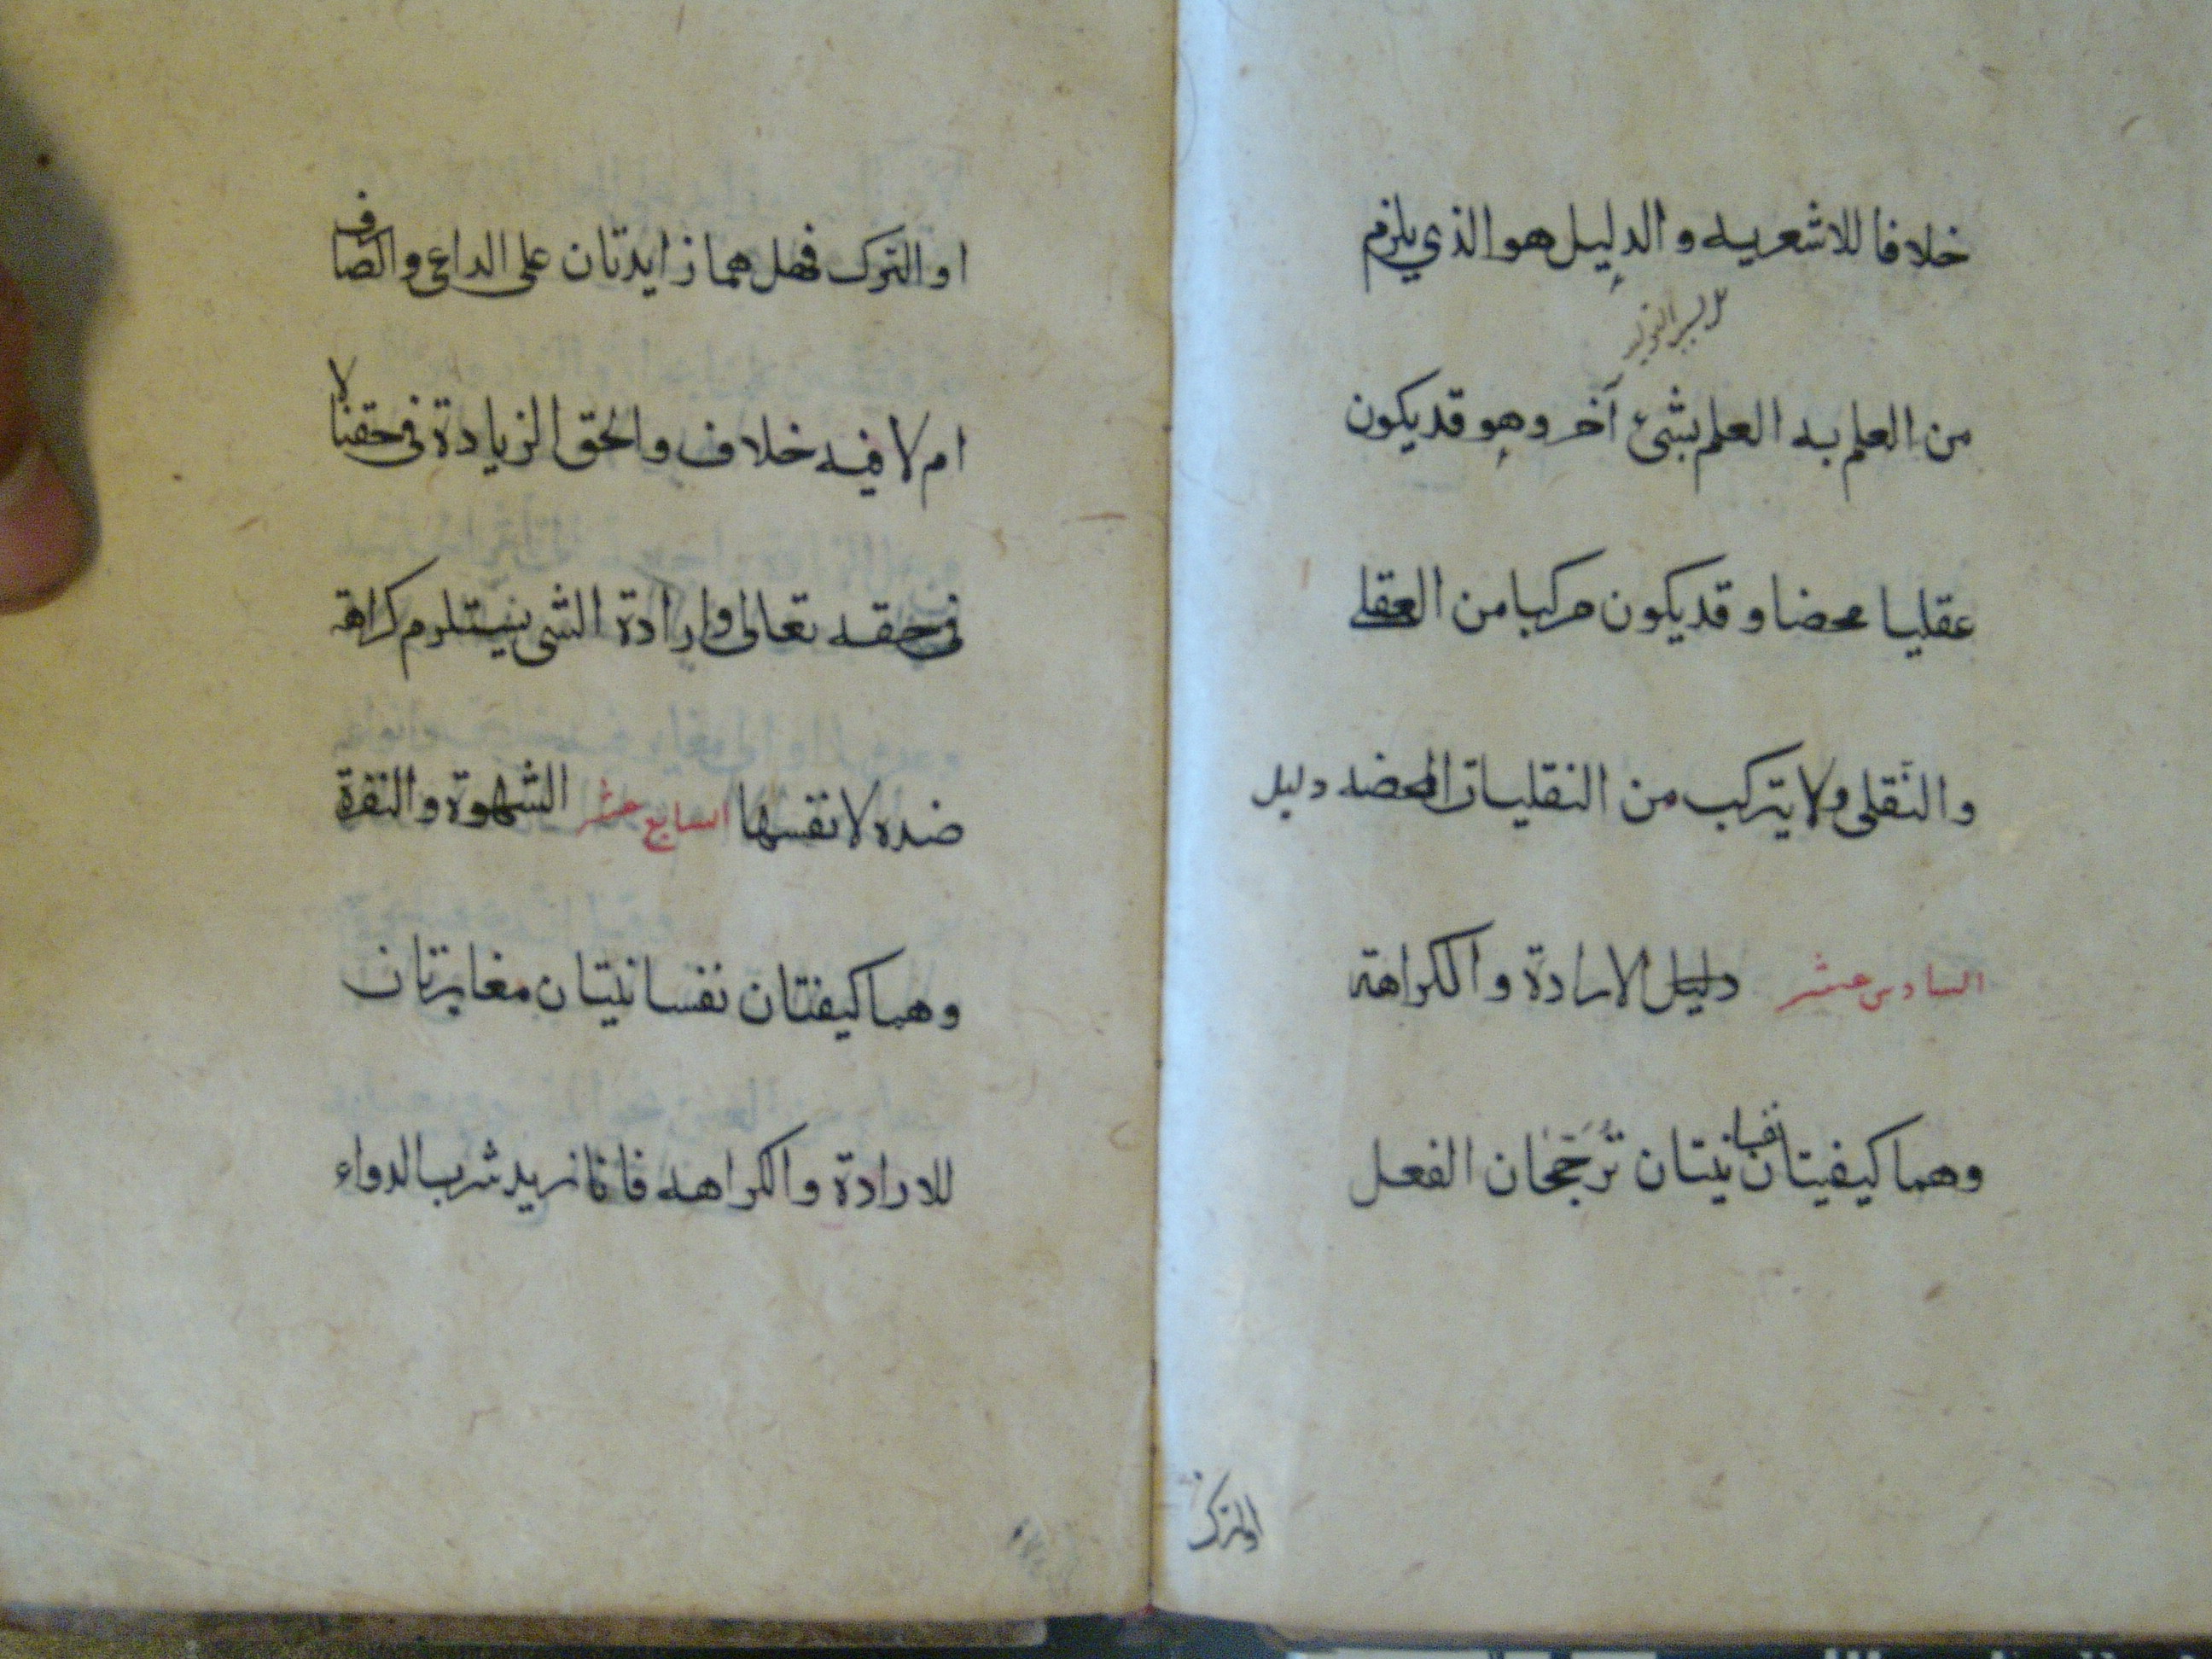 خلافا للاشعريه والدليل هو الذي يلزم
من العلم به العلم بشئ آخر وهو قد يكون
عقليا محضا وقد يكون مركبا من العقلي
والنقلي ولا يتركب من النقليات المحضه دليل
السادس عشر دليل الارادة والكراهة
وهما كيفيتان نفسانيتان ترجحان الفعل
اوالترك
او الترك فهل هما زايدتان على الداعي والصارف
ام لا فيه خلاف والحق الزيادة في حقنا لا
في حقه تعالى وارادة الشي يستلزم كراهة
ضده لا نفسها السابع عشر الشهوة والنفرة
وهما كيفتان نفسانيتان مغايرتان
للارادة والكراهه فانا نريد شرب الدواء